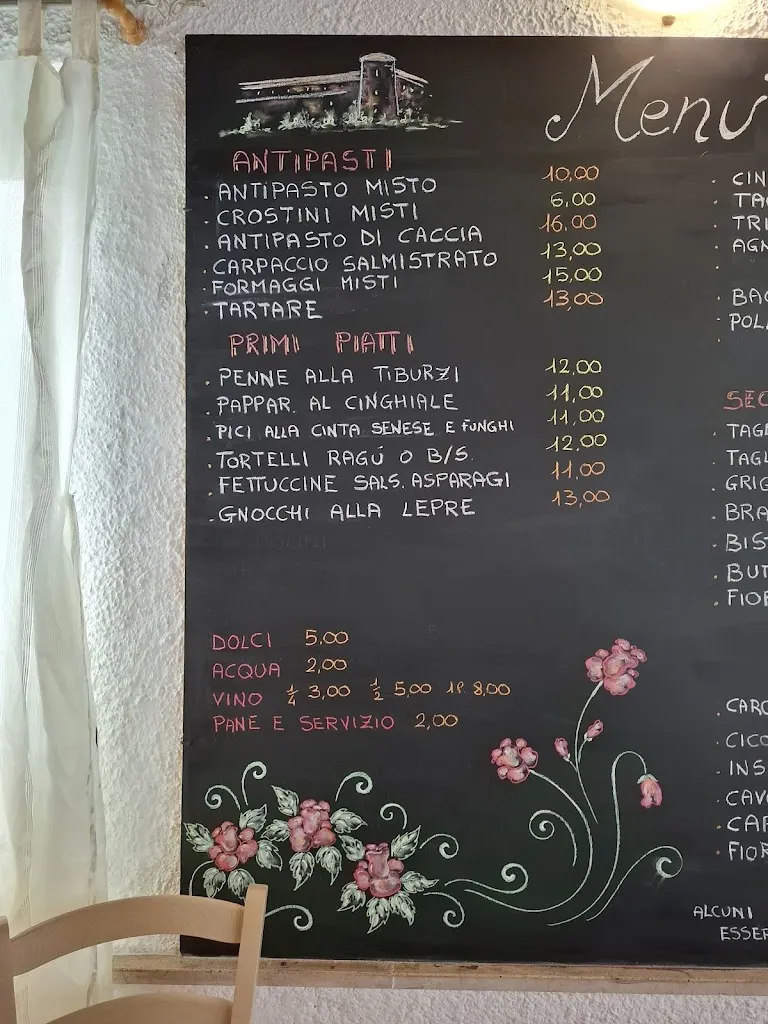 Menu
ANTIPASTI
. ANTIPASTO MISTO 10,00
. CROSTINI MISTI 6,00
. ANTIPASTO DI CACCIA 16,00
. CARPACCIO SALMISTRATO 13,00
. FORMAGGI MISTI 15,00
. TARTARE 13,00
PRIMI PIATTI
. PENNE ALLA TIBURZI 12,00
. PAPPAR. AL CINGHIALE 11,00
. PICI ALLA CINTA SENESE E FUNGHI 11,00
. TORTELLI RAGÚ O B/S. 12,00
. FETTUCCINE SALS. ASPARAGI 11,00
. GNOCCHI ALLA LEPRE 13,00
DOLCI 5,00
ACQUA 2,00
VINO ¼ 3,00 ½ 5,00 1P. 8,00
PANE E SERVIZIO 2,00
. CIN
. TA
. TRI
. AGN
. BA
. POL
SEC
. TAGL
. TAGL
. GRIG
. BRA
. BIS
. BU
. FIO
. CAR
. CICO
. INS
. CAV
. CA
. FIO
ALCUNI
ESSE